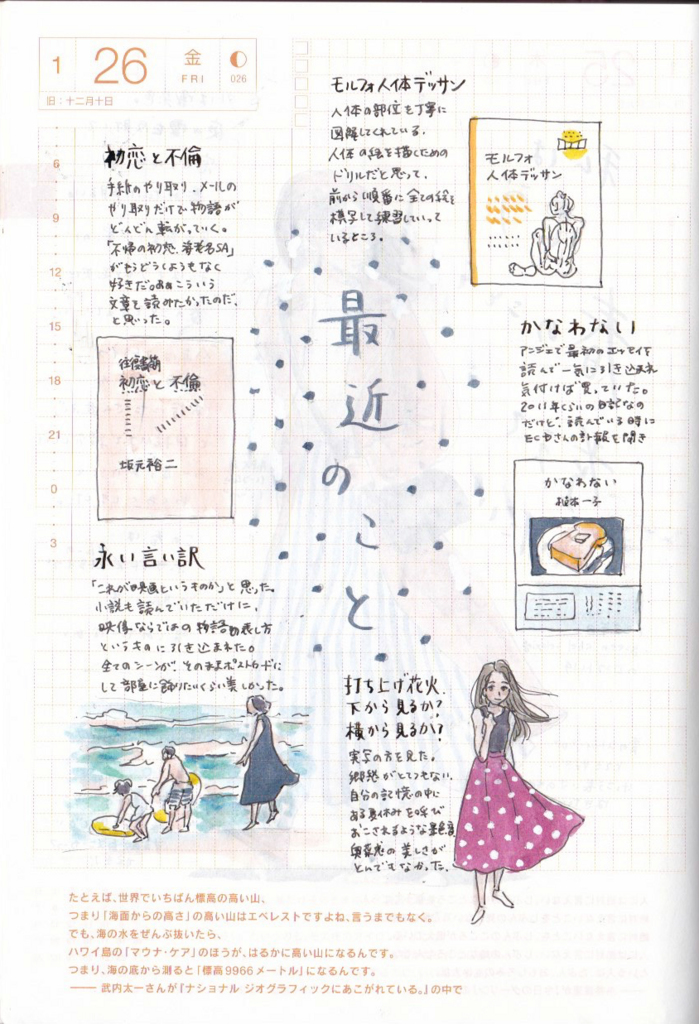 1 26 金 FRI 026
旧：十二月十日
6
9
12
15
18
21
0
3
最近のこと
初恋と不倫
手紙のやり取り、メールの
やり取りだけで物語が
どんどん転がっていく。
「不帰の初恋、海老名SA」
がもうどうしようもなく
好きだ。ああこういう
文章を読みたかったのだ、
と思った。
往復書簡
初恋と不倫
坂元裕二
モルフォ人体デッサン
人体の部位を丁寧に
図解してくれている。
人体の絵を描くための
ドリルだと思って、
前から順番に全ての絵を
模写して練習していって
いるところ。
モルフォ
人体デッサン
かなわない
アンジェで最初のエッセイを
読んで一気に引き込まれ
気付けば買っていた。
2011年くらいの日記なの
だけど、読んでいる時に
ECDさんの訃報を聞き
かなわない
植本一子
永い言い訳
「これが映画というものか」と思った。
小説も読んでいただけに、
映像ならではの物語の表し方
というものに引き込まれた。
全てのシーンが、そのままポストカードに
して部屋に飾りたいくらい美しかった。
打ち上げ花火、
下から見るか?
横から見るか?
実写の方を見た。
郷愁がとてつもない。
自分の記憶の中に
ある夏休みを呼び
おこされるような景色
奥菜恵の美しさが
とんでもなかった。
たとえば、世界でいちばん標高の高い山、
つまり「海面からの高さ」の高い山はエベレストですよね、言うまでもなく。
でも、海の水をぜんぶ抜いたら、
ハワイ島の「マウナ・ケア」のほうが、はるかに高い山になるんです。
つまり、海の底から測ると「標高9966メートル」になるんです。
―― 武内太一さんが『ナショナル ジオグラフィックにあこがれている。』の中で